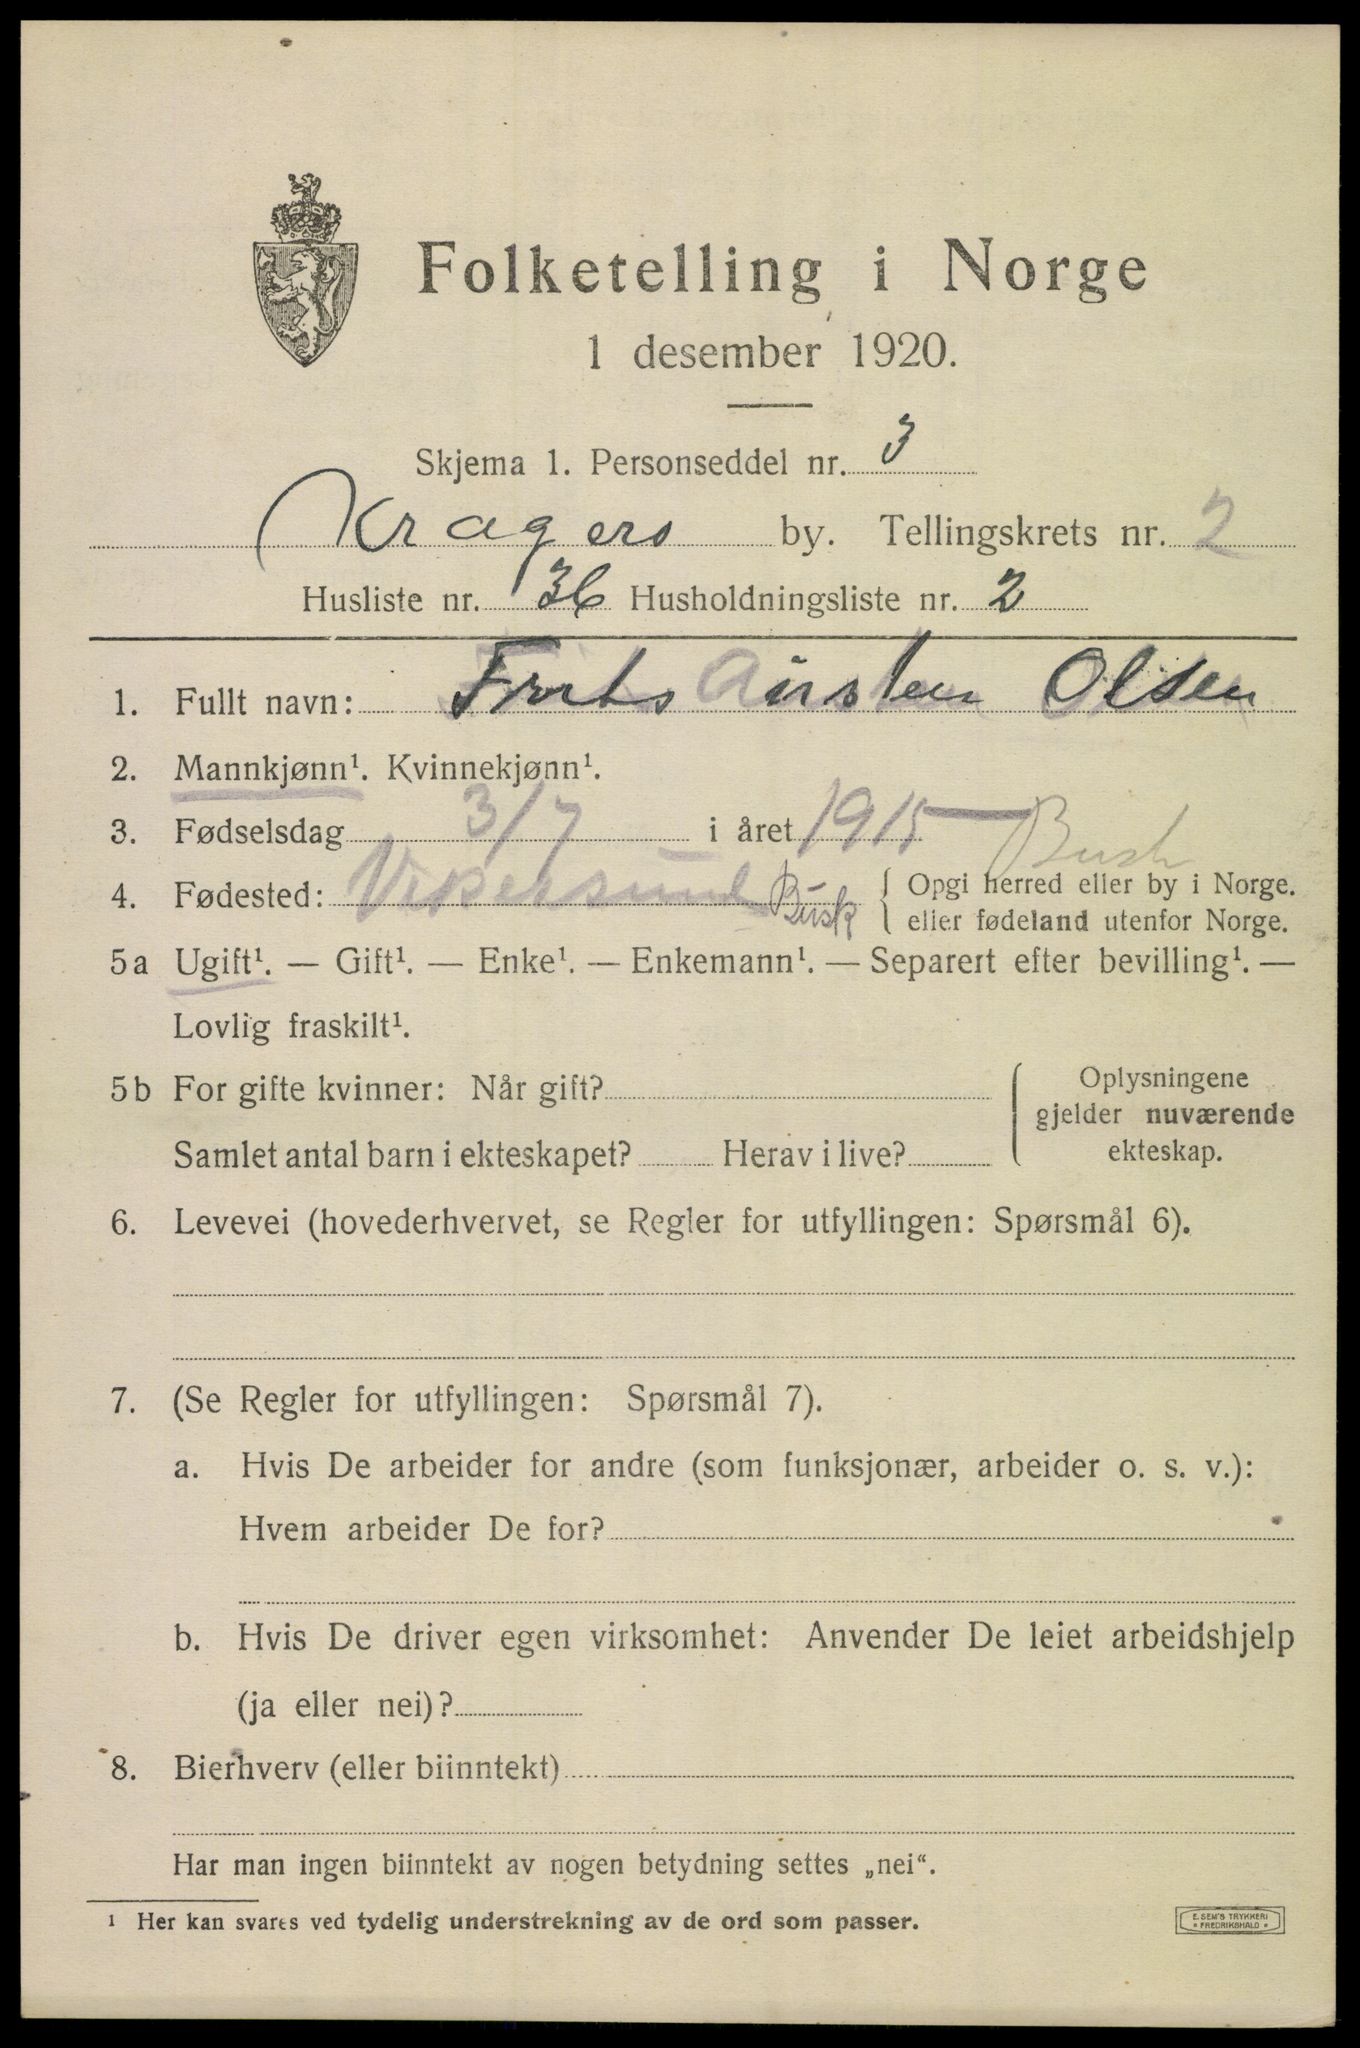 Folketelling i Norge
1 desember 1920.
Skjema 1. Personseddel nr. 3
Kragerø by. Tellingskrets nr. 2
Husliste nr. 36 Husholdningsliste nr. 2
1. Fullt navn: Olsen
2. Mannkjønn¹. Kvinnekjønn¹.
3. Fødselsdag 3/7 i året 1915
Busk
4. Fødested: Vikersund Busk { Opgi herred eller by i Norge.
eller fødeland utenfor Norge.
5a Ugift¹. — Gift¹. — Enke¹. — Enkemann¹. — Separert efter bevilling¹. —
Lovlig fraskilt¹.
5b For gifte kvinner: Når gift?
Samlet antal barn i ekteskapet? Herav i live?
Oplysningene
gjelder nuværende
ekteskap.
6. Levevei (hovederhvervet, se Regler for utfyllingen: Spørsmål 6).
7. (Se Regler for utfyllingen: Spørsmål 7).
a. Hvis De arbeider for andre (som funksjonær, arbeider o. s. v.):
Hvem arbeider De for?
b. Hvis De driver egen virksomhet: Anvender De leiet arbeidshjelp
(ja eller nei)?
8. Bierhverv (eller biinntekt)
Har man ingen biinntekt av nogen betydning settes „nei“.
¹ Her kan svares ved tydelig understrekning av de ord som passer.
E. SEM'S TRYKKERI
* FREDRIKSHALD *